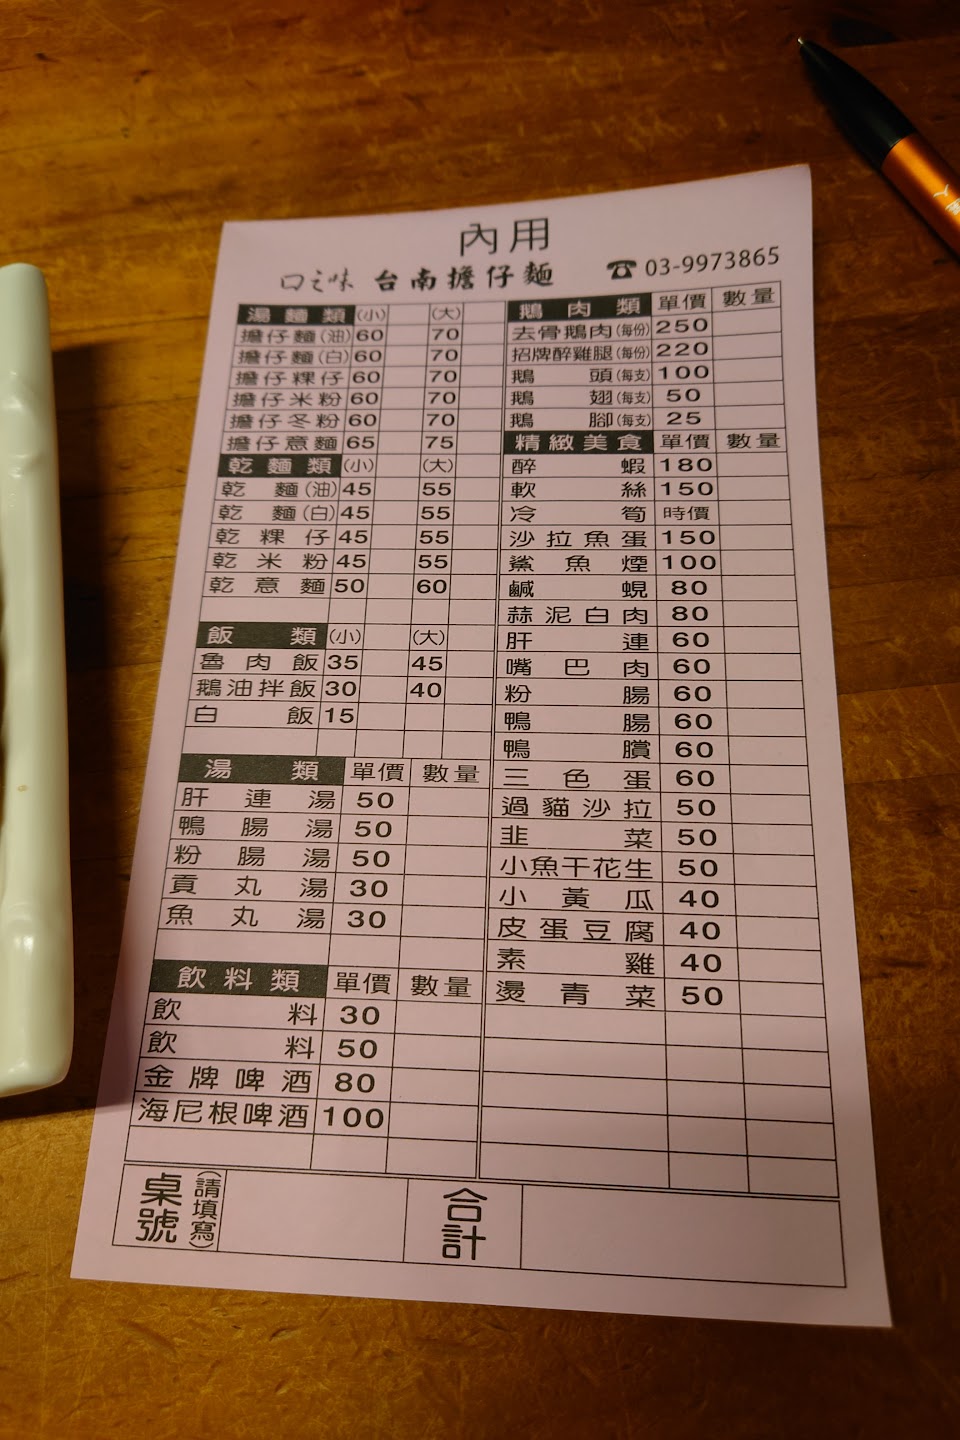 內用
口之味 台南擔仔麵 ☎ 03-9973865
湯麵類 (小) (大)
擔仔麵(油) 60 70
擔仔麵(白) 60 70
擔仔粿仔 60 70
擔仔米粉 60 70
擔仔冬粉 60 70
擔仔意麵 65 75
乾麵類 (小) (大)
乾麵(油) 45 55
乾麵(白) 45 55
乾粿仔 45 55
乾米粉 45 55
乾意麵 50 60
飯類 (小) (大)
魯肉飯 35 45
鵝油拌飯 30 40
白飯 15
湯類 單價 數量
肝連湯 50
鴨腸湯 50
粉腸湯 50
貢丸湯 30
魚丸湯 30
飲料類 單價 數量
飲料 30
飲料 50
金牌啤酒 80
海尼根啤酒 100
鵝肉類 單價 數量
去骨鵝肉(每份) 250
招牌醉雞腿(每份) 220
鵝頭(每支) 100
鵝翅(每支) 50
鵝腳(每支) 25
精緻美食 單價 數量
醉蝦 180
軟絲 150
冷筍 時價
沙拉魚蛋 150
鯊魚煙 100
鹹蜆 80
蒜泥白肉 80
肝連 60
嘴巴肉 60
粉腸 60
鴨腸 60
鴨臏 60
三色蛋 60
過貓沙拉 50
韭菜 50
小魚干花生 50
小黃瓜 40
皮蛋豆腐 40
素雞 40
燙青菜 50
桌號(請填寫) 合計